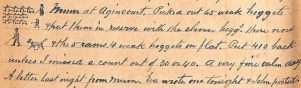 Mum at Agincourt. Picked out 65 weak hoggets
& put them in reserve with the eleven hogg's there now
& the 5 rams. 4 weak hoggets on flat. Put 410 back
unless I missed a count out of 30 or 40. A very fine calm day
A letter last night from Mum. Eva wrote one tonight & John posted